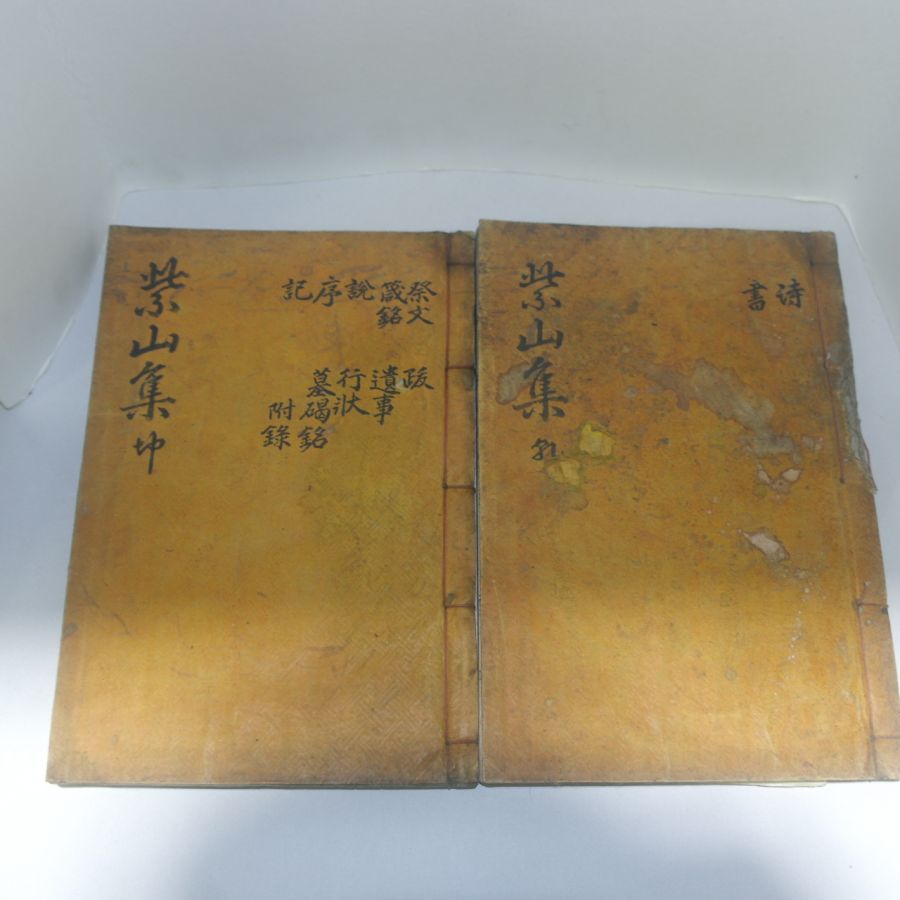 詩
書
紫山集 乾
祭文
箴銘
說
序
記
跋
遺事
行狀
墓碣銘
附錄
紫山集 坤